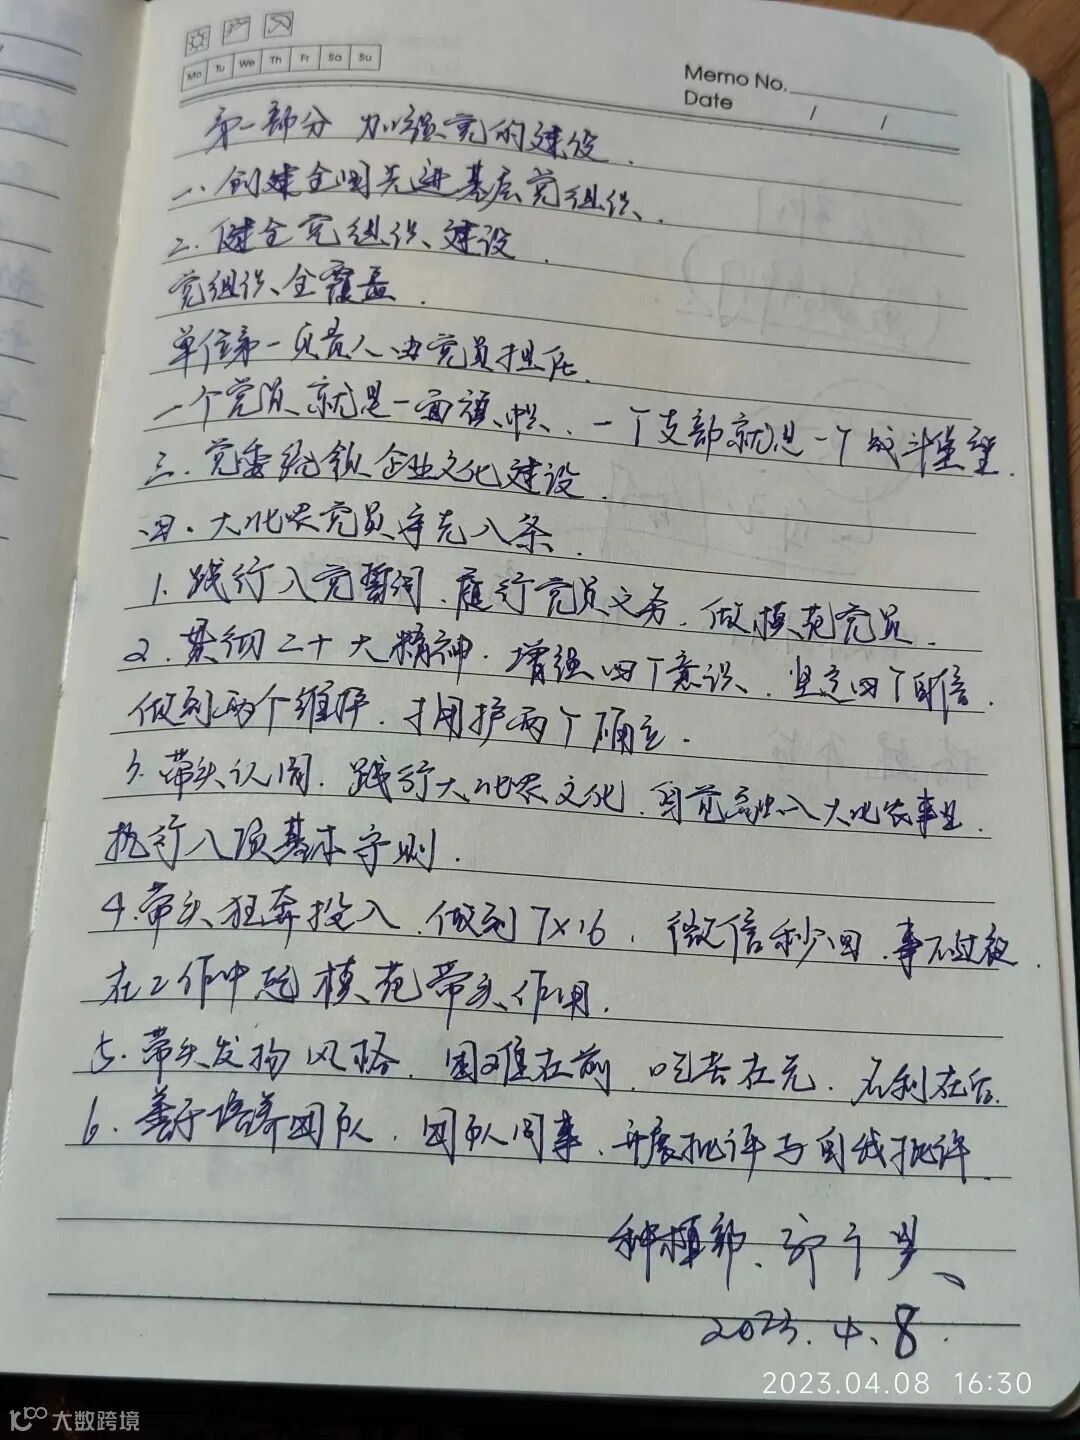 Mo Tu We Th Fr Sa Su
Memo No.
Date / /
第一部分 加强党的建设.
一、创建全国先进基层党组织.
二、健全党组织建设.
党组织全覆盖.
单位第一负责人由党员担任.
一个党员就是一面旗帜、一个支部就是一个战斗堡垒.
三、党委统领企业文化建设.
四、大北农党员争先八条.
1. 践行入党誓词、履行党员义务、做模范党员.
2. 贯彻二十大精神、增强四个意识、坚定四个自信.
做到两个维护、拥护两个确立.
3. 带头认同、践行大北农文化、模范融入大北农事业.
执行八项基本守则.
4. 带头狂奔投入、做到7×16、微信秒回、事不过夜.
在工作中起模范带头作用.
5. 带头发扬风格、困难在前、吃苦在先、名利在后.
6. 善于培养团队、团队同事、开展批评与自我批评.
种植部、
2023.4.8.
2023.04.08 16:30
大数跨境